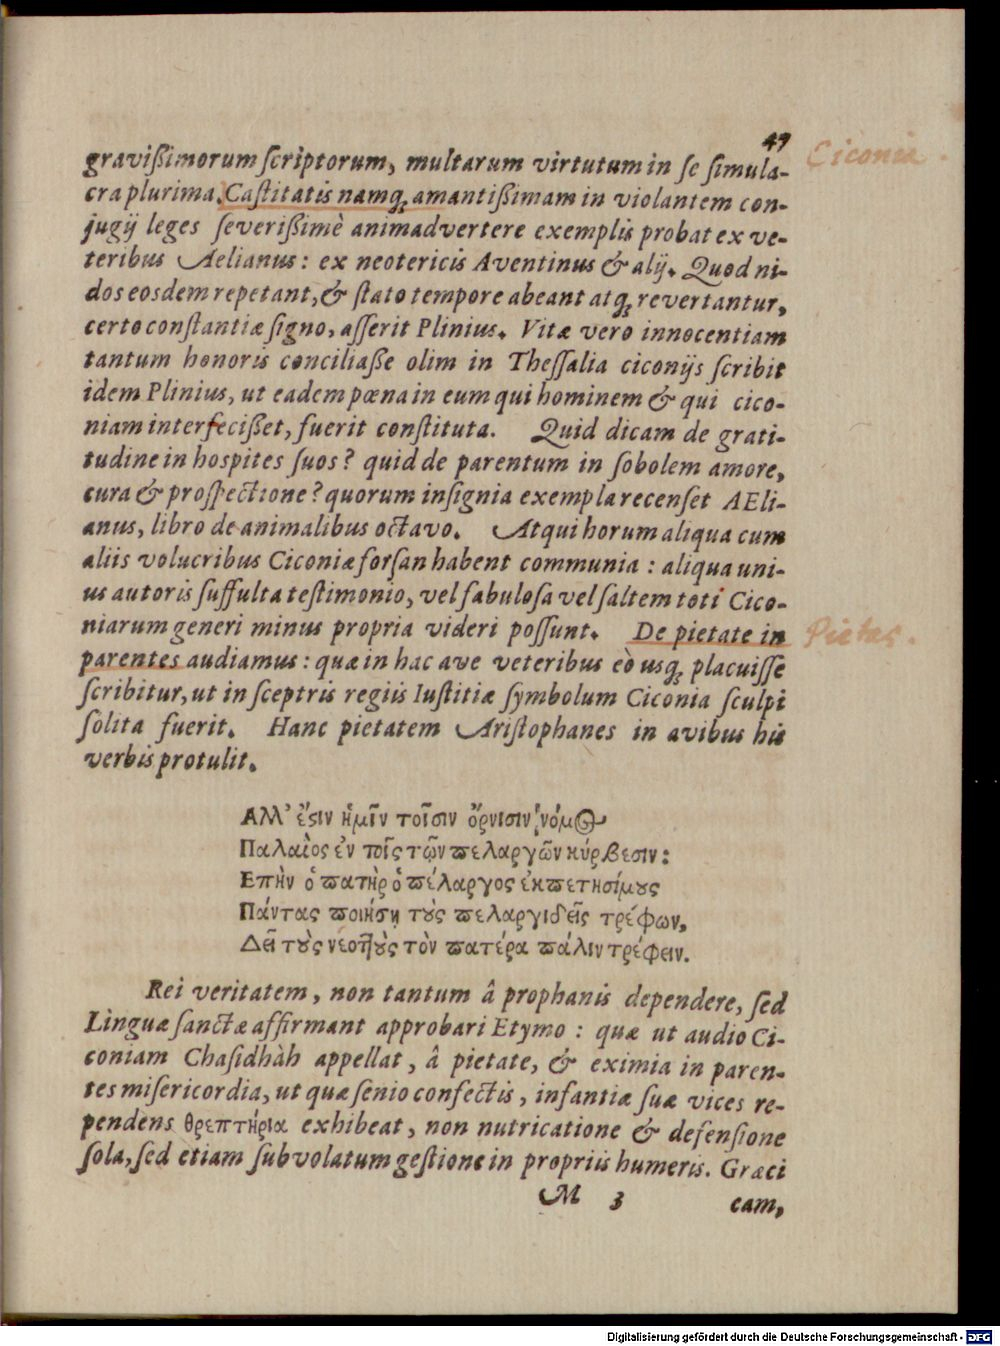 47
Ciconia.
gravißimorum ſcriptorum, multarum virtutum in ſe ſimula-
cra plurima. Caſtitatis namq; amantißimam in violantem con-
jugij leges ſeverißimè animadvertere exemplis probat ex ve-
teribus Aelianus: ex neotericis Aventinus & alij. Quod ni-
dos eosdem repetant, & ſtato tempore abeant atq; revertantur,
certo conſtantiæ ſigno, aſſerit Plinius. Vitæ vero innocentiam
tantum honoris conciliaße olim in Theſſalia ciconijs ſcribit
idem Plinius, ut eadem pœna in eum qui hominem & qui cico-
niam interfecißet, fuerit conſtituta. Quid dicam de grati-
tudine in hospites ſuos? quid de parentum in ſobolem amore,
cura & proſpectione? quorum inſignia exempla recenſet AEli-
anus, libro de animalibus octavo. Atqui horum aliqua cum
aliis volucribus Ciconiæ forſan habent communia: aliqua uni-
us autoris ſuffulta teſtimonio, vel fabuloſa vel ſaltem toti Cico-
niarum generi minus propria videri poſſunt. De pietate in
Pietas.
parentes audiamus: quæ in hac ave veteribus eò usq; placuiſſe
ſcribitur, ut in ſceptris regiis Iuſtitiæ ſymbolum Ciconia ſculpi
ſolita fuerit. Hanc pietatem Ariſtophanes in avibus his
verbis protulit.
Αλλ’ ἔϛιν ἡμῖν τοῖσιν ὄρνισιν νόμος
Παλαιὸς ἐν τοῖς τῶν πελαργῶν κύρβεσιν:
Επὴν ὁ πατὴρ ὁ πέλαργος ἐκπετησίμȣς
Πάντας ποιήσῃ τȣ̀ς πελαργιδεῖς τρέφων,
Δεῖ τȣ̀ς νεοτȣ̀ς τὸν πατέρα πάλιν τρέφειν.
Rei veritatem, non tantum â prophanis dependere, ſed
Linguæ ſanctæ affirmant approbari Etymo: quæ ut audio Ci-
coniam Chaſidhàh appellat, â pietate, & eximia in paren-
tes miſericordia, ut quæ ſenio confectis, infantiæ ſuæ vices re-
pendens θρεπτήρια exhibeat, non nutricatione & defenſione
ſola, ſed etiam ſubvolatum geſtione in propriis humeris. Græci
M 3
cam,
Digitalisierung gefördert durch die Deutsche Forschungsgemeinschaft - DFG